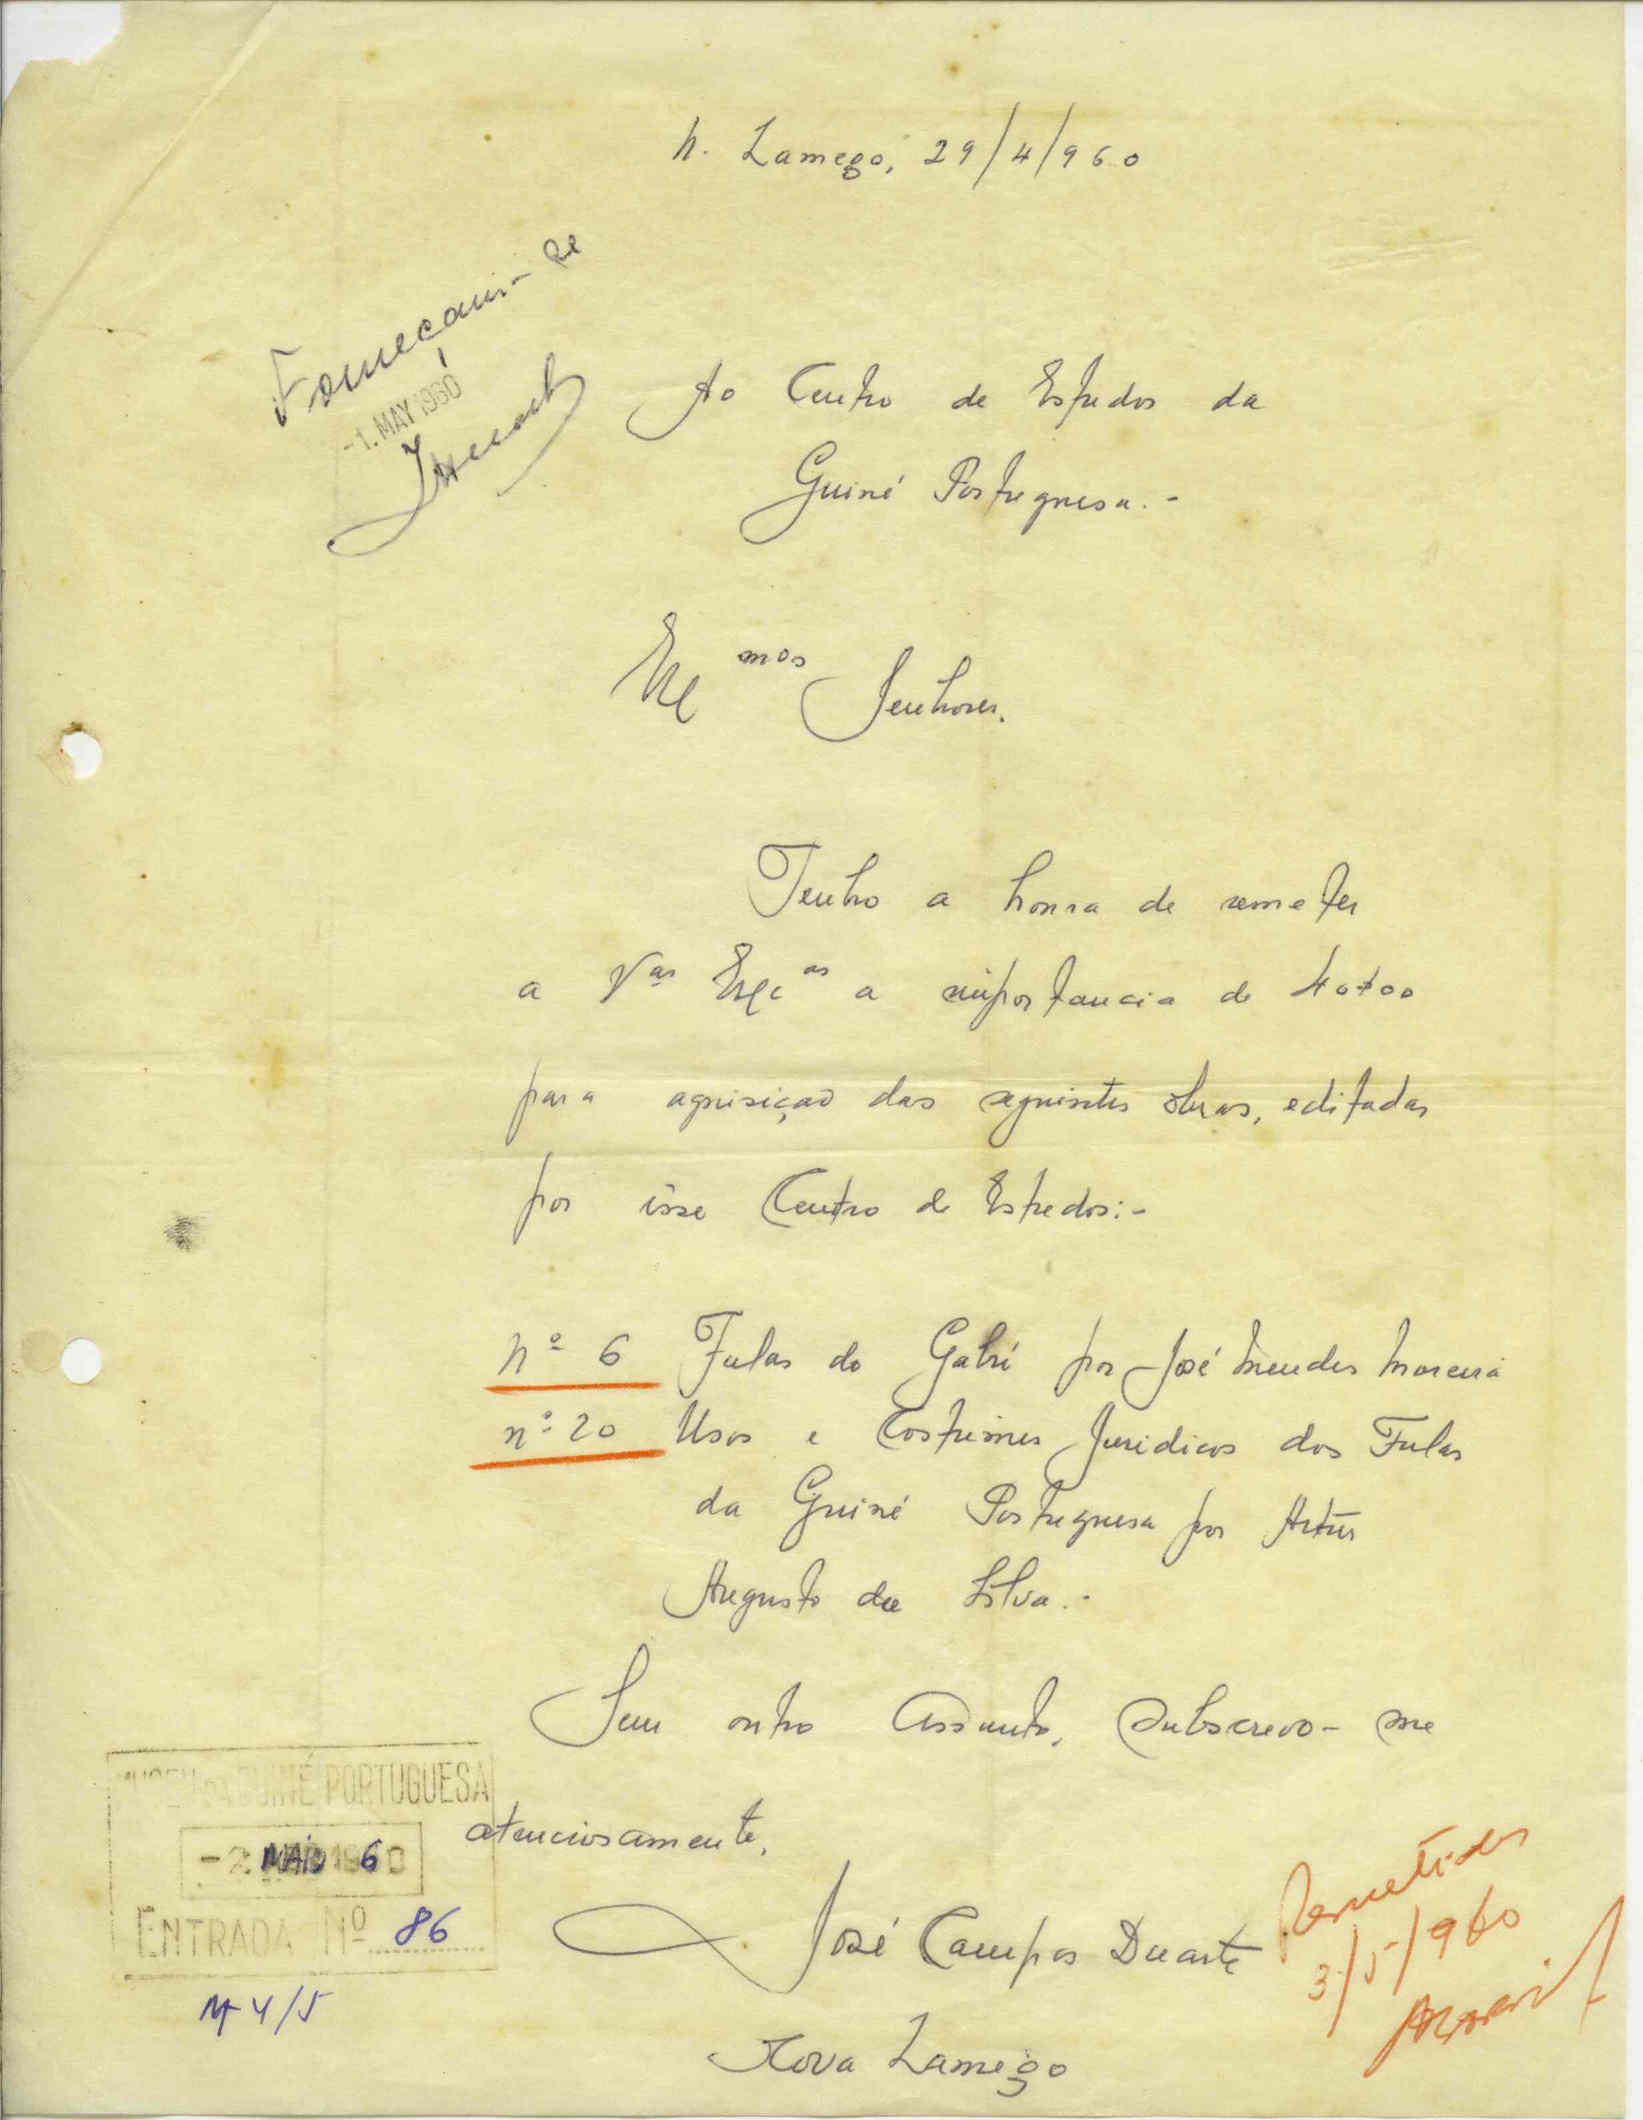 N. Lamego, 29/4/960
Forneçam-se
-1. MAY 1960
Ao Centro de Estudos da
Guiné Portuguesa.-
Exc mos Senhores.
Tenho a honra de remeter
a Vas Excas a importancia de 40$00
para aquisição das seguintes obras, editadas
por êsse Centro de Estudos:-
Nº 6 Fulas do Gabú por José Mendes Moreira
nº 20 Usos e Costumes Juridicos dos Fulas
da Guiné Portuguesa por Artur
Augusto da Silva.-
Sem outro assunto, subscrevo-me
atenciosamente,
MUSEU DA GUINÉ PORTUGUESA
-2. MAIO 1960
ENTRADA Nº 86
4/5
José Campos Duarte
Nova Lamego
Remetidos
3/5/960